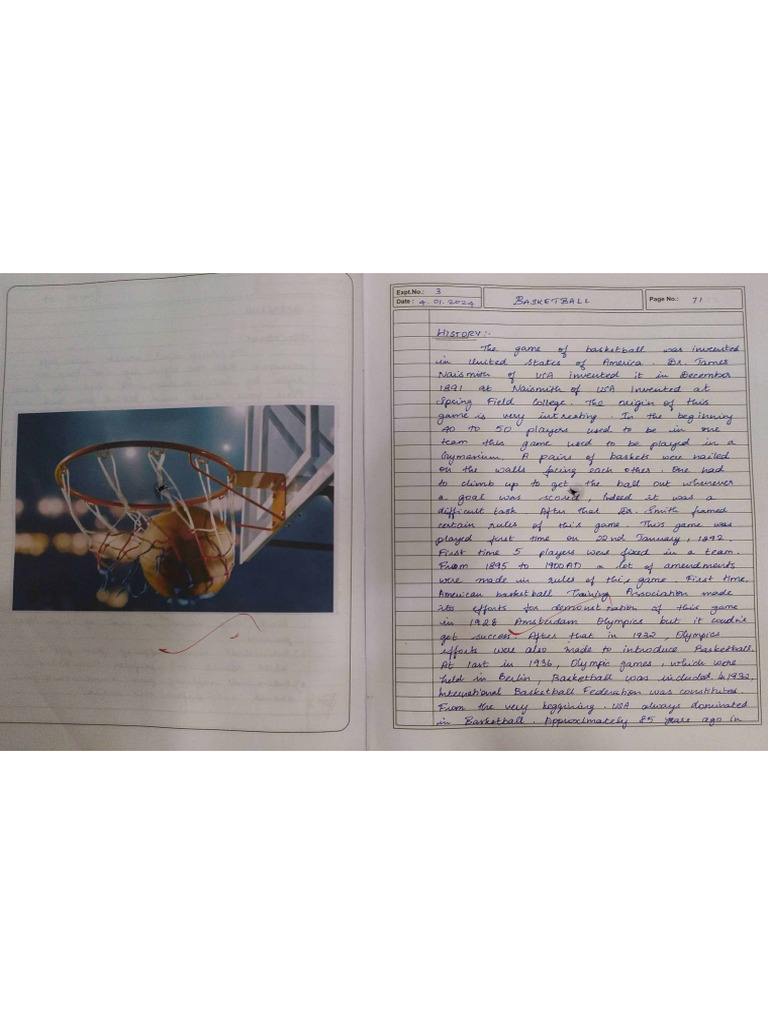 Expt.No.: 3
Date : 4.01.2024
BASKETBALL
Page No.: 71
HISTORY:-
The game of basketball was invented
in United States of America. Dr. James
Naismith of USA invented it in December
1891 at Naismith of USA Invented at
Spring Field College. The origin of this
game is very intresting. In the beginning
40 to 50 players used to be in one
team this game used to be played in a
Gymanium. A pairs of baskets were nailed
on the walls facing each other. One had
to climb up to get the ball out whenever
a goal was scored, Indeed it was a
difficult task. After that Dr. Smith framed
certain rules of this game. This game was
played first time on 22nd January, 1892.
First time 5 players were fixed in a team.
From 1895 to 1900AD a lot of amendments
were made in rules of this game. First time,
American basketball Training Association made
its efforts for demonstration of this game
in 1928 Amsterdam Olympics but it couldn't
get success. After that in 1932, Olympics
efforts were also made to introduce Basketball.
At last in 1936, Olympic games, which were
held in Berlin, Basketball was included. In 1932,
International Basketball Federation was constituted.
From the very beggining. USA always dominated
in Basketball. Approximately 85 years ago in